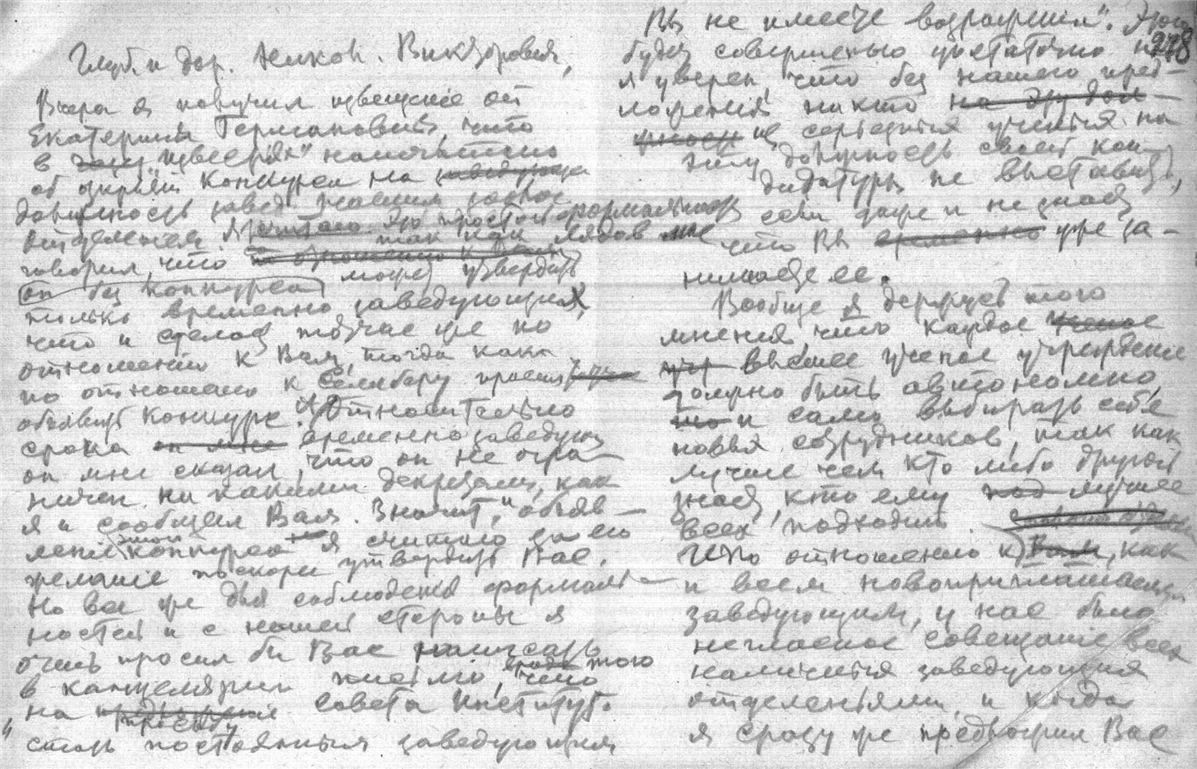 Глуб. и дор. Виктор.
Вчера я получил извещение от
Екатерины Германовны, что
в "Известиях" напечатано
об открытии конкурса на
должность заведующих
отделения. Я так как Лядов мне
говорил, что
он без конкурса может утвердить
только временно заведующих,
что и сделал тотчас же по
отношению к Вам, тогда как
по отношению к просил
объявить конкурс. Относительно
срока он мне временно заведую
он мне сказал, что он не огра-
ничен никакими декретами, как
я и сообщил Вам. Значит, объяв-
ление этого конкурса я считаю за его
желание поскорее утвердить Вас.
Но все же для соблюдения формаль-
ностей и с нашей стороны я
очень просил бы Вас написать
в канцелярии письмо, вроде того что
на просьбу совета Института
"стать постоянным заведующим
Вы не имеете возражения". Этого
278
будет совершенно достаточно и
я уверен, что без нашего пред-
ложения никто на эту дол-
жность не
эту должность своей кан-
дидатуры не выставит,
если даже и не знает
что Вы временно уже за-
нимаете ее.
Вообще я держусь того
мнения, что каждое ученое
учр высшее ученое учреждение
должно быть автономно,
но и само выбирать себе
новых сотрудников, так как
лучше чем кто либо другой
знает, кто ему под лучше
всех подходит.
И по отношению к Вам, как
и всем новоприглашаемым
заведующим, у нас было
негласное совещание всех
заведующих
отделениями, и когда
я сразу же предложил Вас